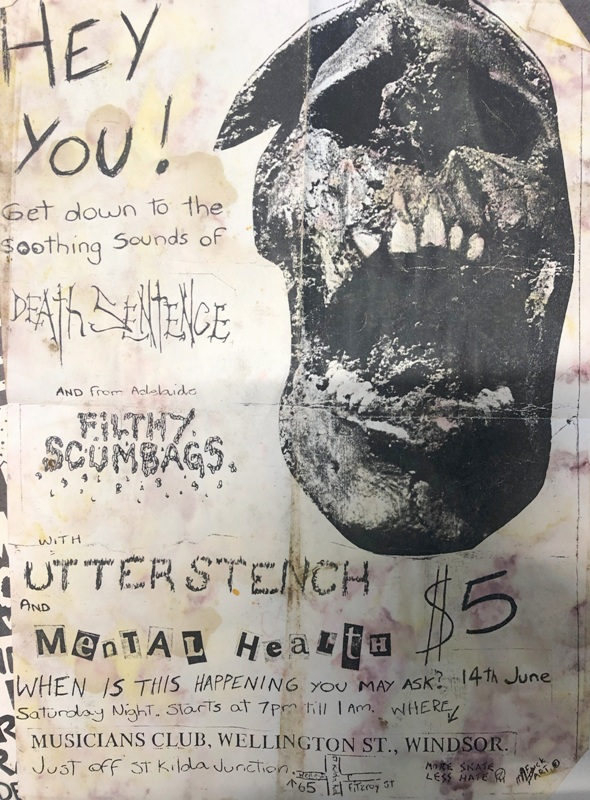 HEY
YOU!
Get down to the
Soothing Sounds of
DEATH SENTENCE
AND from Adelaide
FILTHY
SCUMBAGS.
WITH
UTTER STENCH
AND
$5
MenTAL HeaLtH
WHEN IS THIS HAPPENING YOU MAY ASK? 14th June
Saturday Night. Starts at 7pm till 1am. WHERE
MUSICIANS CLUB, WELLINGTON ST., WINDSOR.
Just off ST Kilda Junction.
65
Fitzroy St
MORE SKATE
LESS HATE